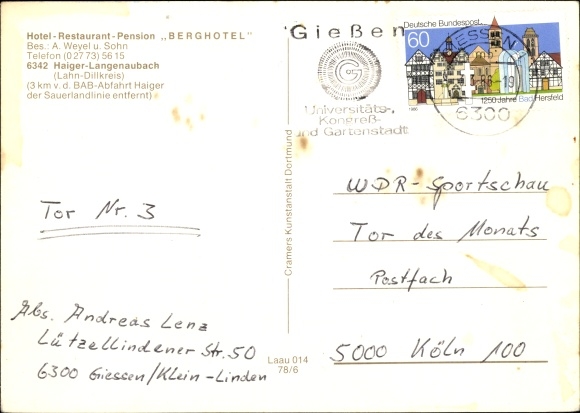 Hotel-Restaurant-Pension „BERGHOTEL"
Bes.: A. Weyel u. Sohn
Telefon (0 27 73) 56 15
6342 Haiger-Langenaubach
(Lahn-Dillkreis)
(3 km v. d. BAB-Abfahrt Haiger
der Sauerlandlinie entfernt)
Gießen
Universitäts-,
Kongreß-
und Gartenstadt
GIESSEN
6300
Deutsche Bundespost
60
1250 Jahre Bad Hersfeld
1986
Tor Nr. 3
Abs. Andreas Lenz
Lützellindener Str. 50
6300 Giessen/Klein-Linden
Cramers Kunstanstalt Dortmund
Laau 014
78/6
WDR-Sportschau
Tor des Monats
Postfach
5000 Köln 100